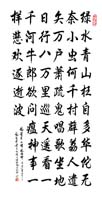 绿水青山枉自多华佗无
奈小虫何千村薜荔人遗
矢万户萧疏鬼唱歌坐地
日行八万里巡天遥看一
千河牛郎欲问瘟神事一
样悲欢逐逝波